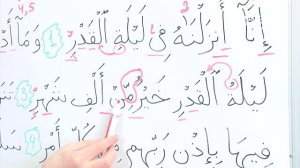 4,5 2
إِنَّآ أَنزَلْنَاهُ فِى لَيْلَةِ ٱلْقَدْرِ 1 وَمَآ أَدْ
لَيْلَةُ ٱلْقَدْرِ خَيْرٌ مِّنْ أَلْفِ شَهْرٍ 3
فِيهَا بِإِذْنِ رَبِّهِم كُلِّ أَمْرٍ